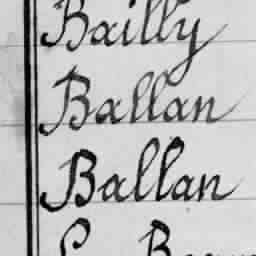 Bailly
Ballan
Ballan